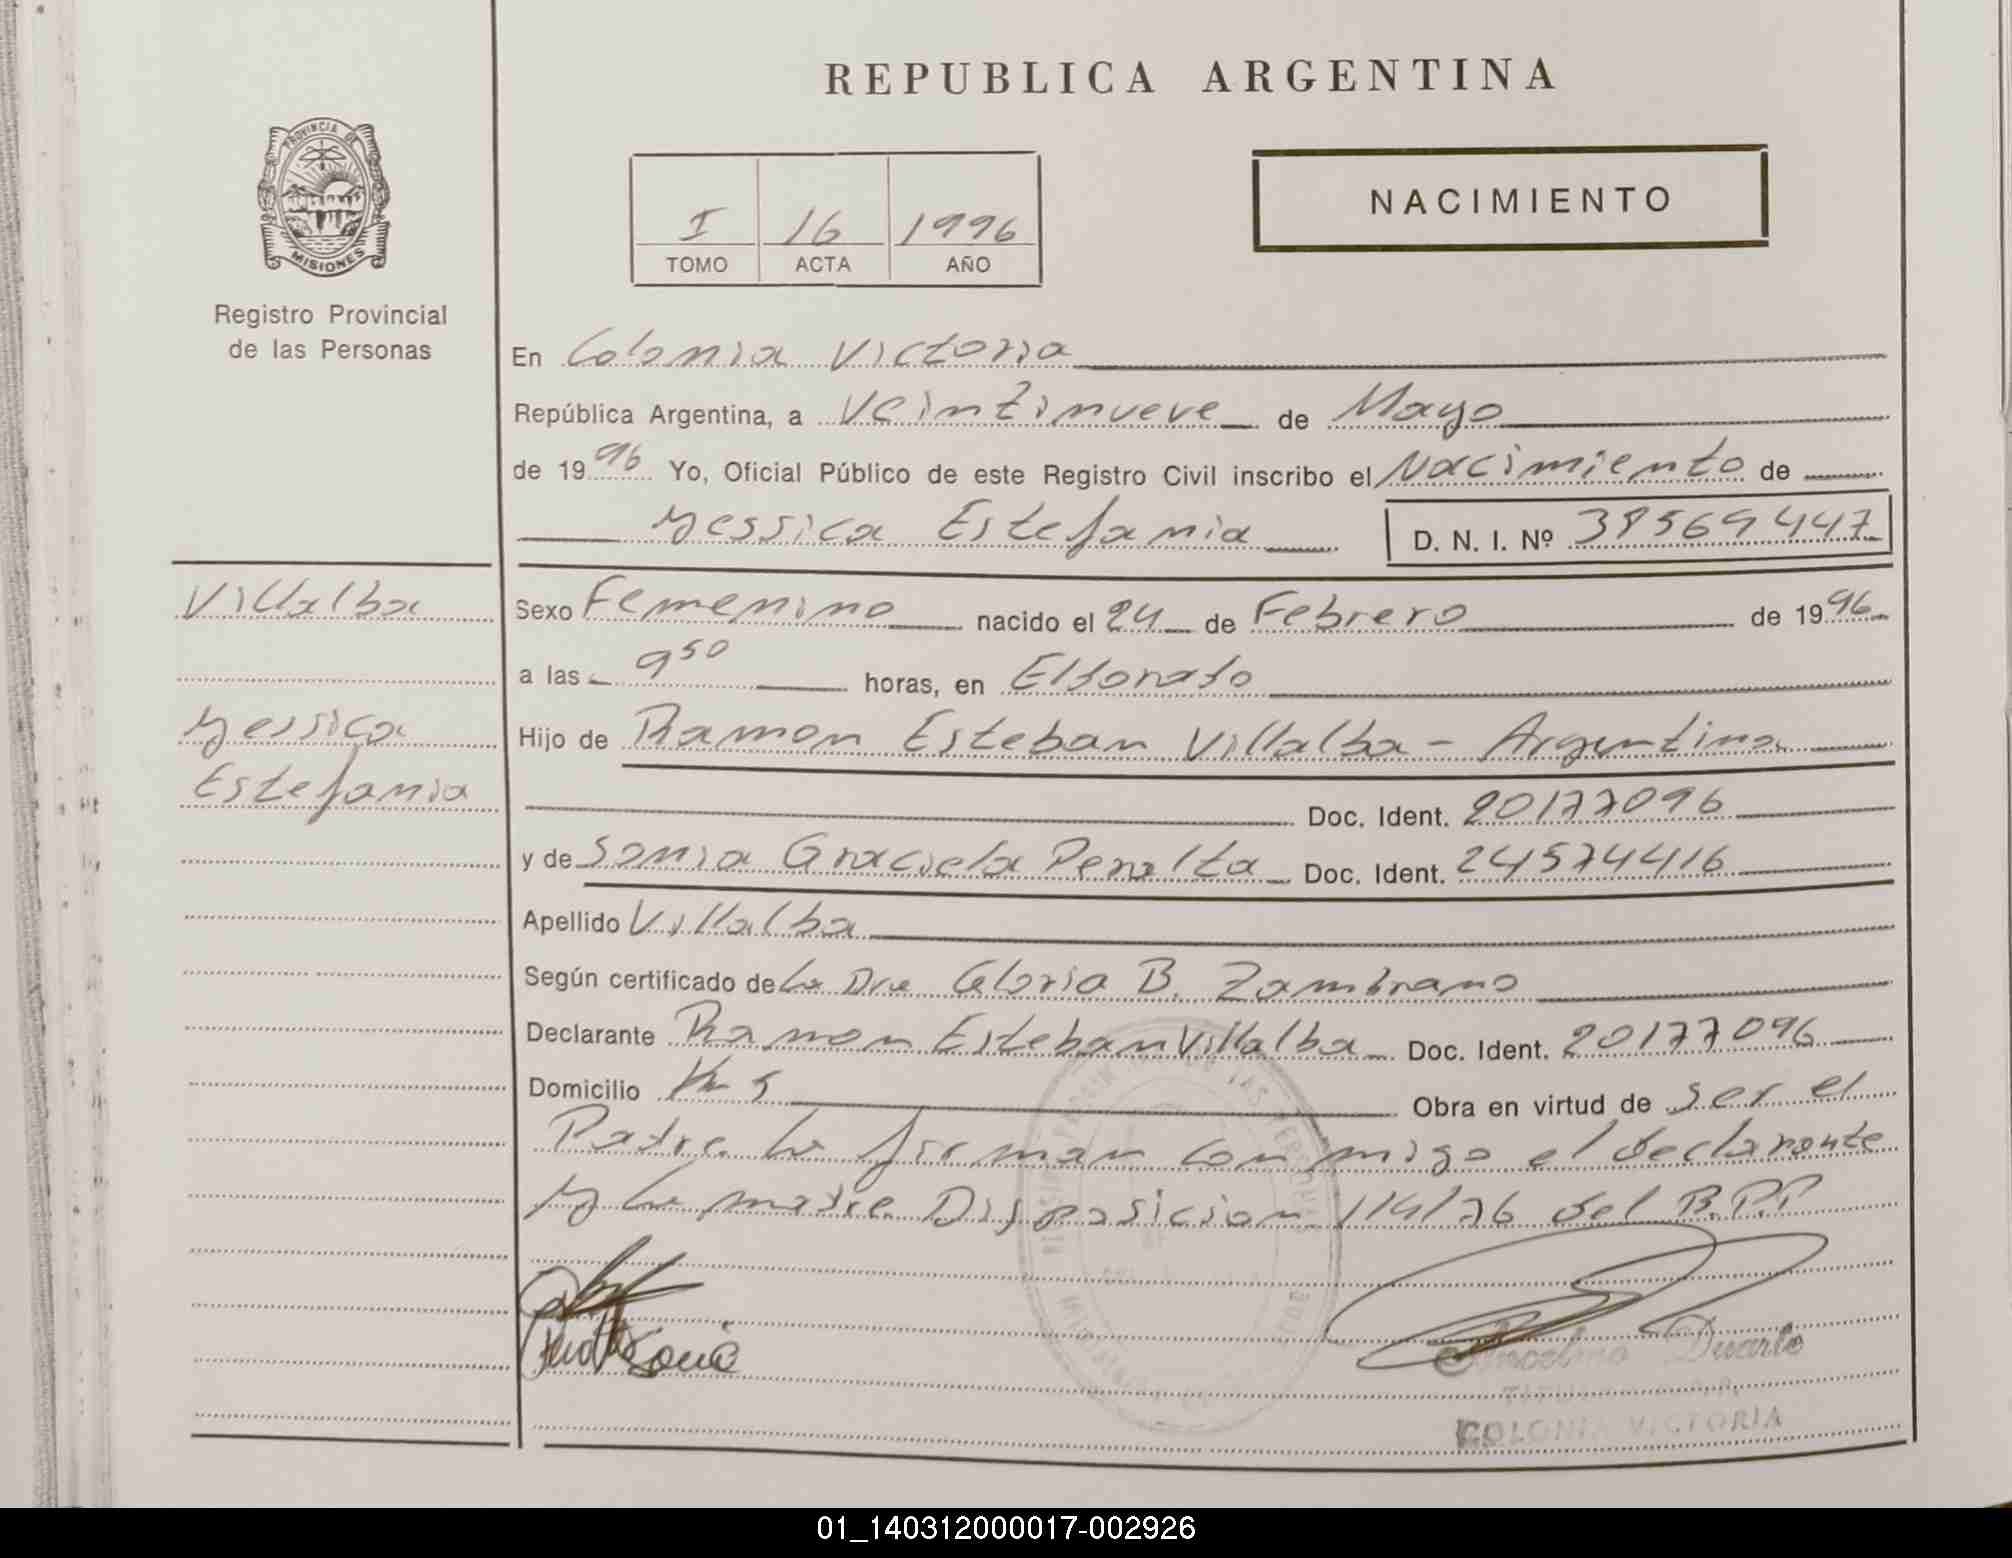 REPUBLICA ARGENTINA
PROVINCIA DE
MISIONES
Registro Provincial
de las Personas
I 16 1996
TOMO ACTA AÑO
NACIMIENTO
En Colonia Victoria
República Argentina, a Veintinueve de Mayo
de 1996 Yo, Oficial Público de este Registro Civil inscribo el Nacimiento de
Yessica Estefania D. N. I. Nº 39569447
Villalba
Yessica
Estefania
Sexo Femenino nacido el 24 de Febrero de 1996
a las 9 50 horas, en Eldorado
Hijo de Ramon Esteban Villalba - Argentina
Doc. Ident. 20177096
y de Sonia Graciela Peralta Doc. Ident. 24574416
Apellido Villalba
Según certificado de La Dra Gloria B. Zambrano
Declarante Ramon Esteban Villalba Doc. Ident. 20177096
Domicilio Km 5 Obra en virtud de ser el
Padre La firman con migo el declarante
y La madre Disposicion 114/76 del R.P.P
Sonia
Anselmo Duarte
COLONIA VICTORIA
01_140312000017-002926